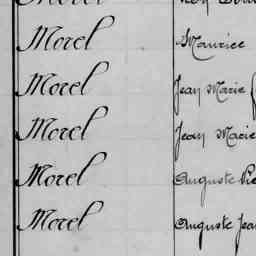 Morel Maurice
Morel Jean Marie
Morel Jean Marie
Morel Auguste
Morel Auguste Jean